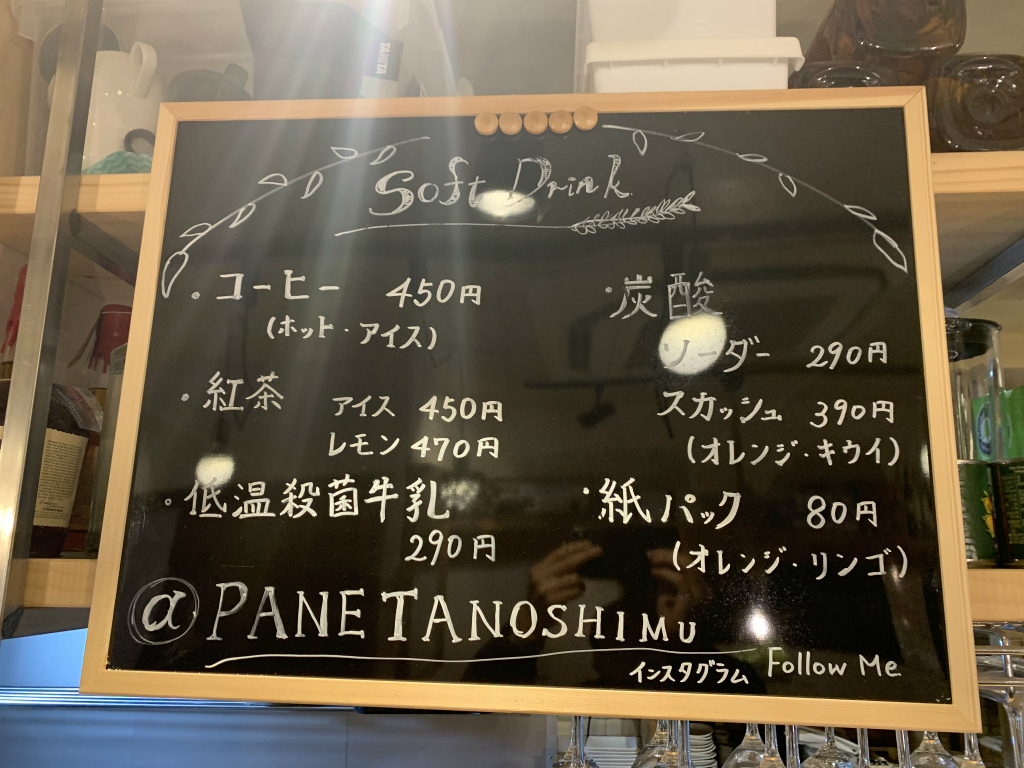 Soft Drink
・コーヒー 450円
(ホット・アイス)
・紅茶 アイス 450円
レモン 470円
・低温殺菌牛乳
290円
・炭酸
ソーダー 290円
スカッシュ 390円
(オレンジ・キウイ)
・紙パック 80円
(オレンジ・リンゴ)
@PANETANOSHIMU
インスタグラム Follow Me
TANITA